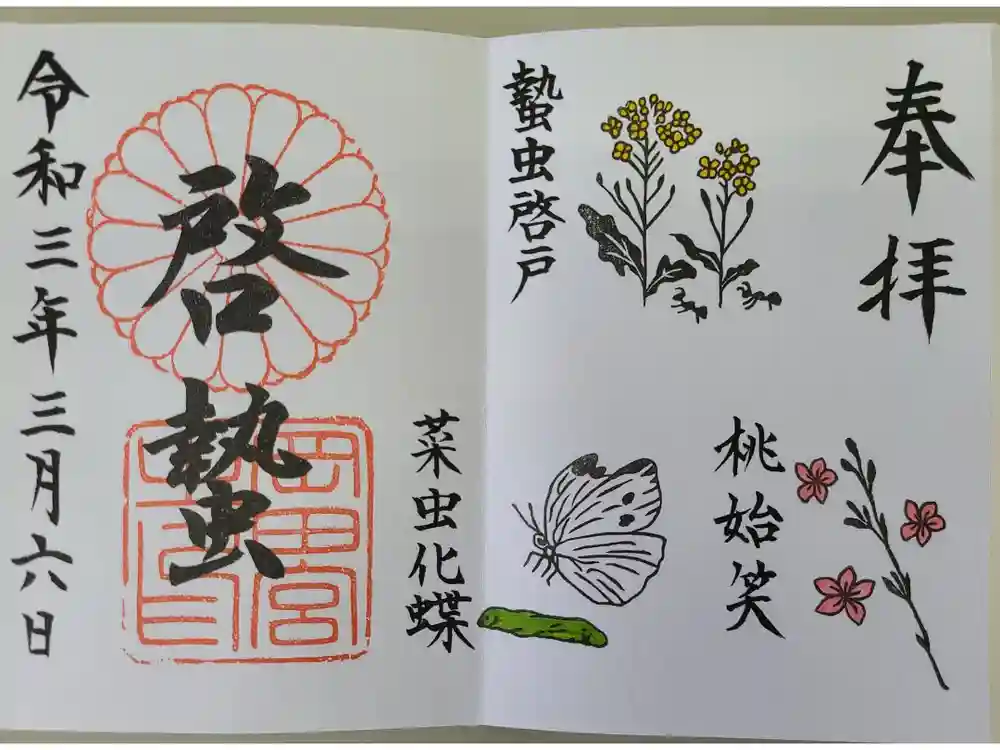 奉拝
蟄虫啓戸
桃始笑
菜虫化蝶
啓蟄
令和三年三月六日